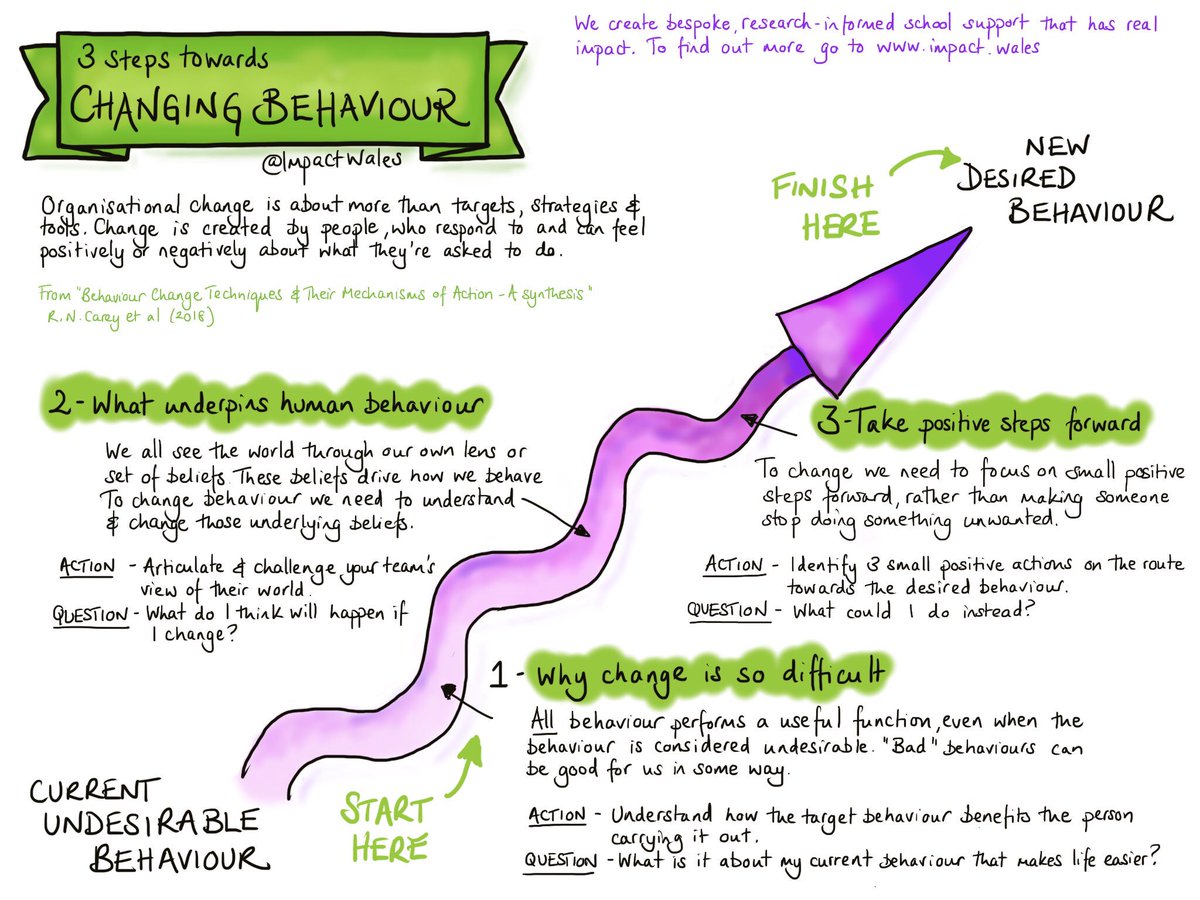 3 steps towards
CHANGING BEHAVIOUR
@ImpactWales
We create bespoke, research-informed school support that has real
impact. To find out more go to www.impact.wales
Organisational change is about more than targets, strategies &
tools. Change is created by people, who respond to and can feel
positively or negatively about what they're asked to do.
From "Behaviour Change Techniques & Their Mechanisms of Action - A synthesis"
R.N. Carey et al (2018)
FINISH
HERE
NEW
DESIRED
BEHAVIOUR
2 - What underpins human behaviour
We all see the world through our own lens or
set of beliefs. These beliefs drive how we behave
To change behaviour we need to understand
& change those underlying beliefs.
ACTION - Articulate & challenge your team's
view of their world.
QUESTION - What do I think will happen if
I change?
3 - Take positive steps forward
To change we need to focus on small positive
steps forward, rather than making someone
stop doing something unwanted.
ACTION - Identify 3 small positive actions on the route
towards the desired behaviour.
QUESTION - What could I do instead?
1 - Why change is so difficult
All behaviour performs a useful function, even when the
behaviour is considered undesirable. "Bad" behaviours can
be good for us in some way.
ACTION - Understand how the target behaviour benefits the person
carrying it out.
QUESTION - What is it about my current behaviour that makes life easier?
START
HERE
CURRENT
UNDESIRABLE
BEHAVIOUR